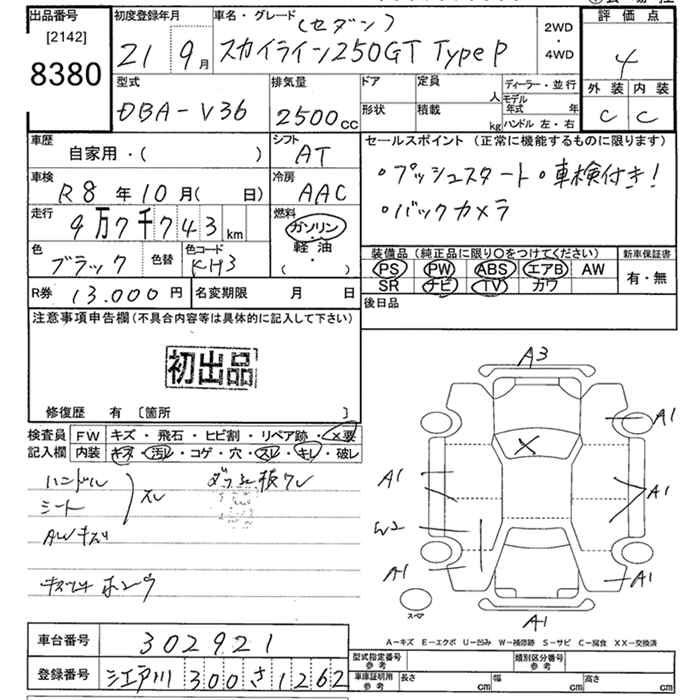 出品番号
[2142]
8380
初度登録年月
21 9月
車名・グレード
(セダン)
スカイライン250GT TypeP
2WD
・
4WD
評価点
4
外装 内装
C C
型式
DBA-V36
排気量
2500cc
ドア
形状
定員
人
積載
kg
ディーラー・並行
モデル年式 年
ハンドル 左・右
車歴
自家用・( )
シフト
AT
車検
R8年10月( 日)
冷房
AAC
走行
9万7千743km
燃料
ガソリン
軽油
( )
色
ブラック
色替
色コード
KH3
R券
13.000円
名変期限 月 日
セールスポイント(正常に機能するものに限ります)
・プッシュスタート・車検付き!
・バックカメラ
装備品(純正品に限り○をつけてください)
PS PW ABS エアB AW
SR ナビ TV カワ
新車保証書
有・無
後日品
注意事項申告欄(不具合内容等は具体的に記入して下さい)
初出品
修復歴 有〔箇所 〕
検査員記入欄
FW キズ・飛石・ヒビ割・リペア跡・X要
内装 キズ・汚レ・コゲ・穴・スレ・キレ・破レ
ハンドル
シート
スレ
AWキズ
A3
A1
A1
A1
W2
A1
A1
A1
スペア
A-キズ E-エクボ U-凹み W-補修跡 S-サビ C-腐食 XX-交換済
車台番号
302921
登録番号
江戸川300さ1262
型式指定番号
参考
類別区分番号
参考
車庫証明用
参考
長さ cm
幅 cm
高さ cm